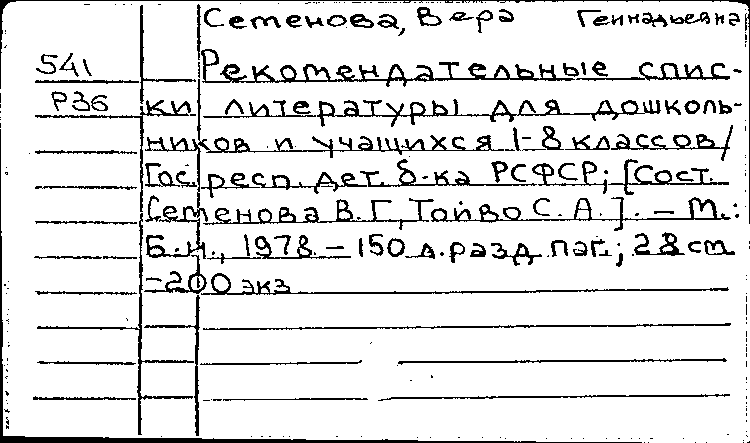 Семенова, Вера Геннадьевна
541 Рекомендательные спис-
Р36 ки литературы для дошколь-
ников и учащихся 1-8 классов/
Гос. респ. дет. б-ка РСФСР; [Сост.
Семенова В. Г., Тойво С. А.]. – М.:
Б.и., 1978 – 150 л. разд. паг.; 28 см
–200 экз